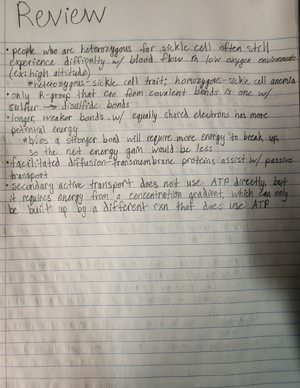 Review
• people who are heterozygous for sickle cell often still
experience difficulty w/ blood flow in low oxygen environments
(ex: high altitude)
*heterozygous - sickle cell trait; homozygous - sickle cell anemia
• only R-group that can form covalent bonds is one w/
sulfur → disulfide bonds
• longer, weaker bonds w/ equally shared electrons has more
potential energy
*b/c a stronger bond will require more energy to break up,
so the net energy gain would be less
• facilitated diffusion - transmembrane proteins assist w/ passive
transport
• secondary active transport does not use ATP directly, but
it requires energy from a concentration gradient, which can only
be built up by a different rxn that does use ATP